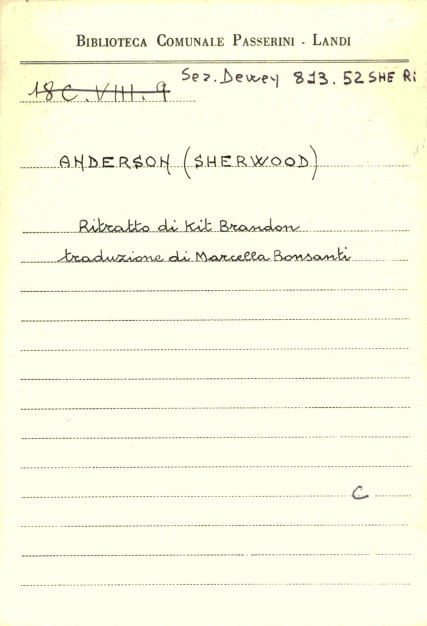 BIBLIOTECA COMUNALE PASSERINI - LANDI
Sez. Dewey 813.52 SHE Ri
18 C. VIII. 9
ANDERSON (SHERWOOD)
Ritratto di Kit Brandon
traduzione di Marcella Bonsanti
C